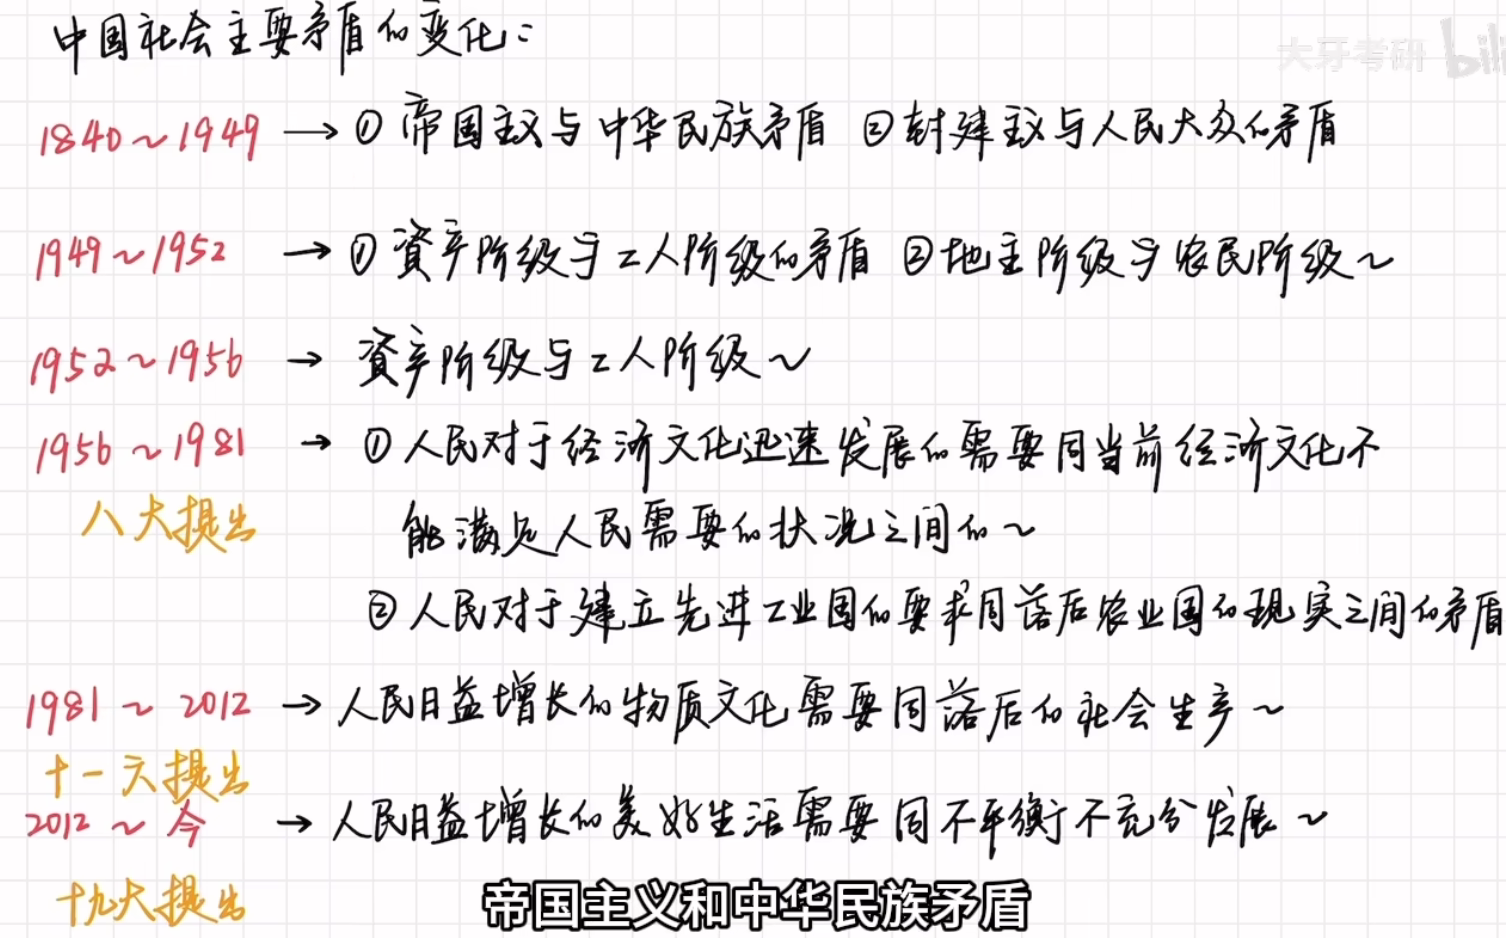 中国社会主要矛盾的变化：
大牙考研 bili
1840~1949 → ① 帝国主义与中华民族矛盾 ②封建主义与人民大众的矛盾
1949~1952 → ①資产阶级与工人阶级的矛盾 ②地主阶级与农民阶级~
1952~1956 → 資产阶级与工人阶级~
1956~1981 → ①人民对于经济文化迅速发展的需要同当前经济文化不
八大提出 能满足人民需要的状况之间的~
②人民对于建立先进工业国的要求同落后农业国的现实之间的矛盾
1981~2012 → 人民日益增长的物质文化需要同落后的社会生产~
十一六提出
2012~今 → 人民日益增长的美好生活需要同不平衡不充分发展~
十九大提出
帝国主义和中华民族矛盾